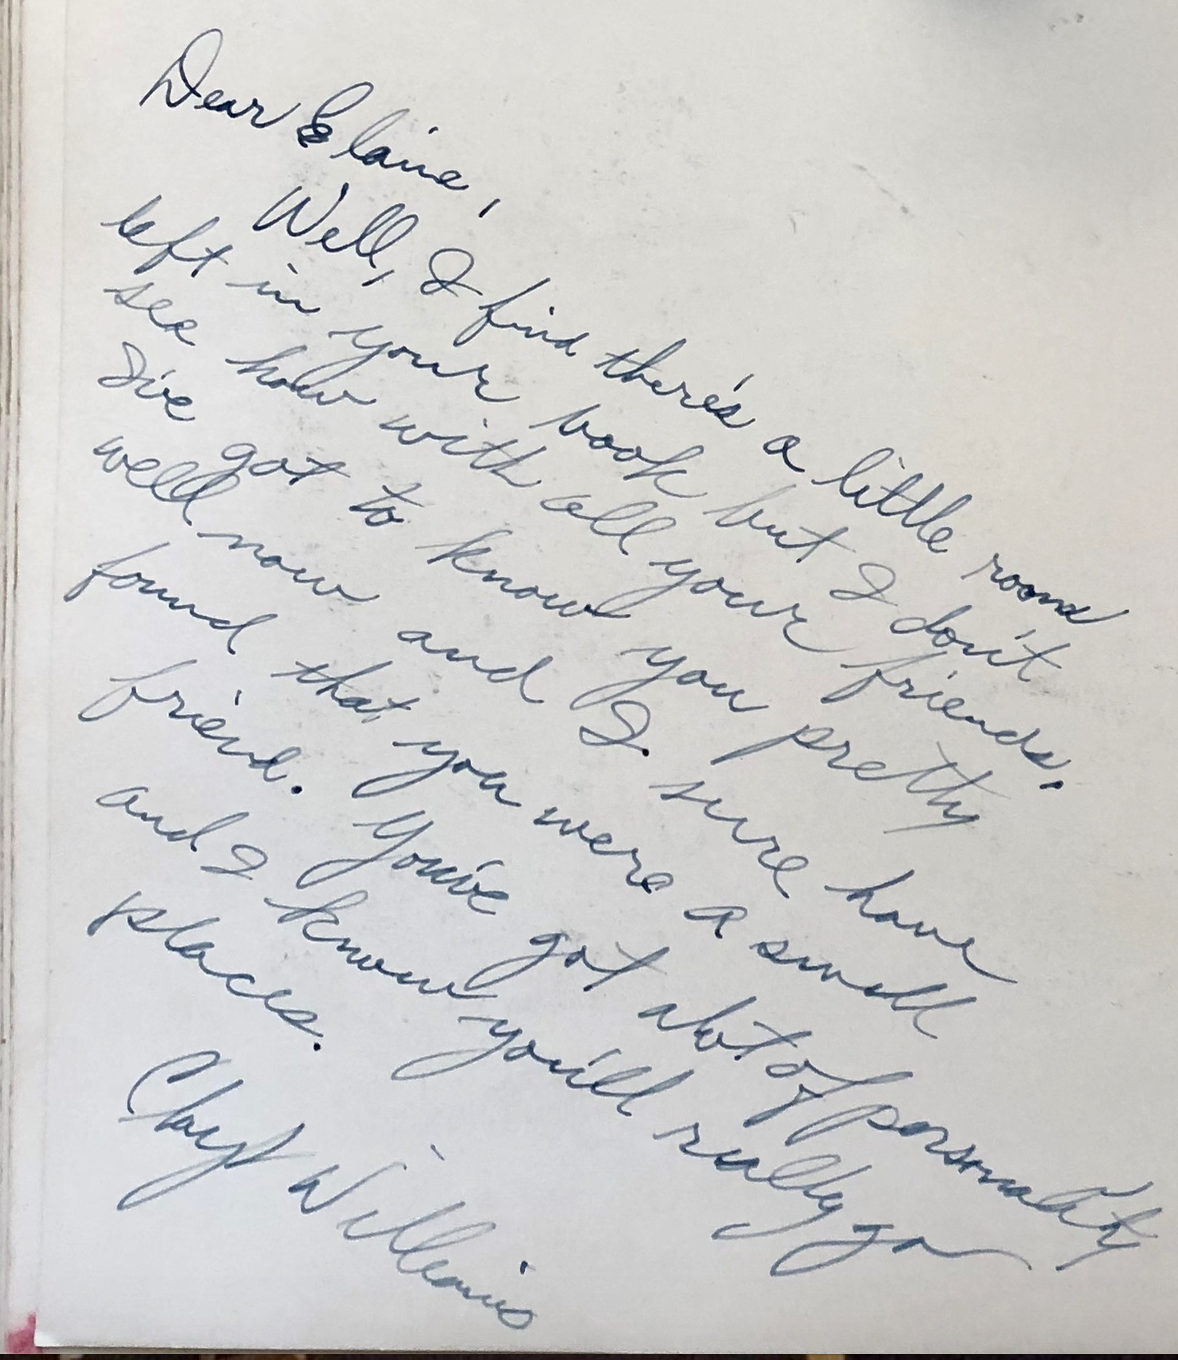 Dear Elaine,
Well, I find there's a little room
left in your book but I don't
see how with all your friends.
I've got to know you pretty
well now and I. sure have
found that you were a swell
friend. You've got alot of personality
and I know you'll really go
places.
Williams